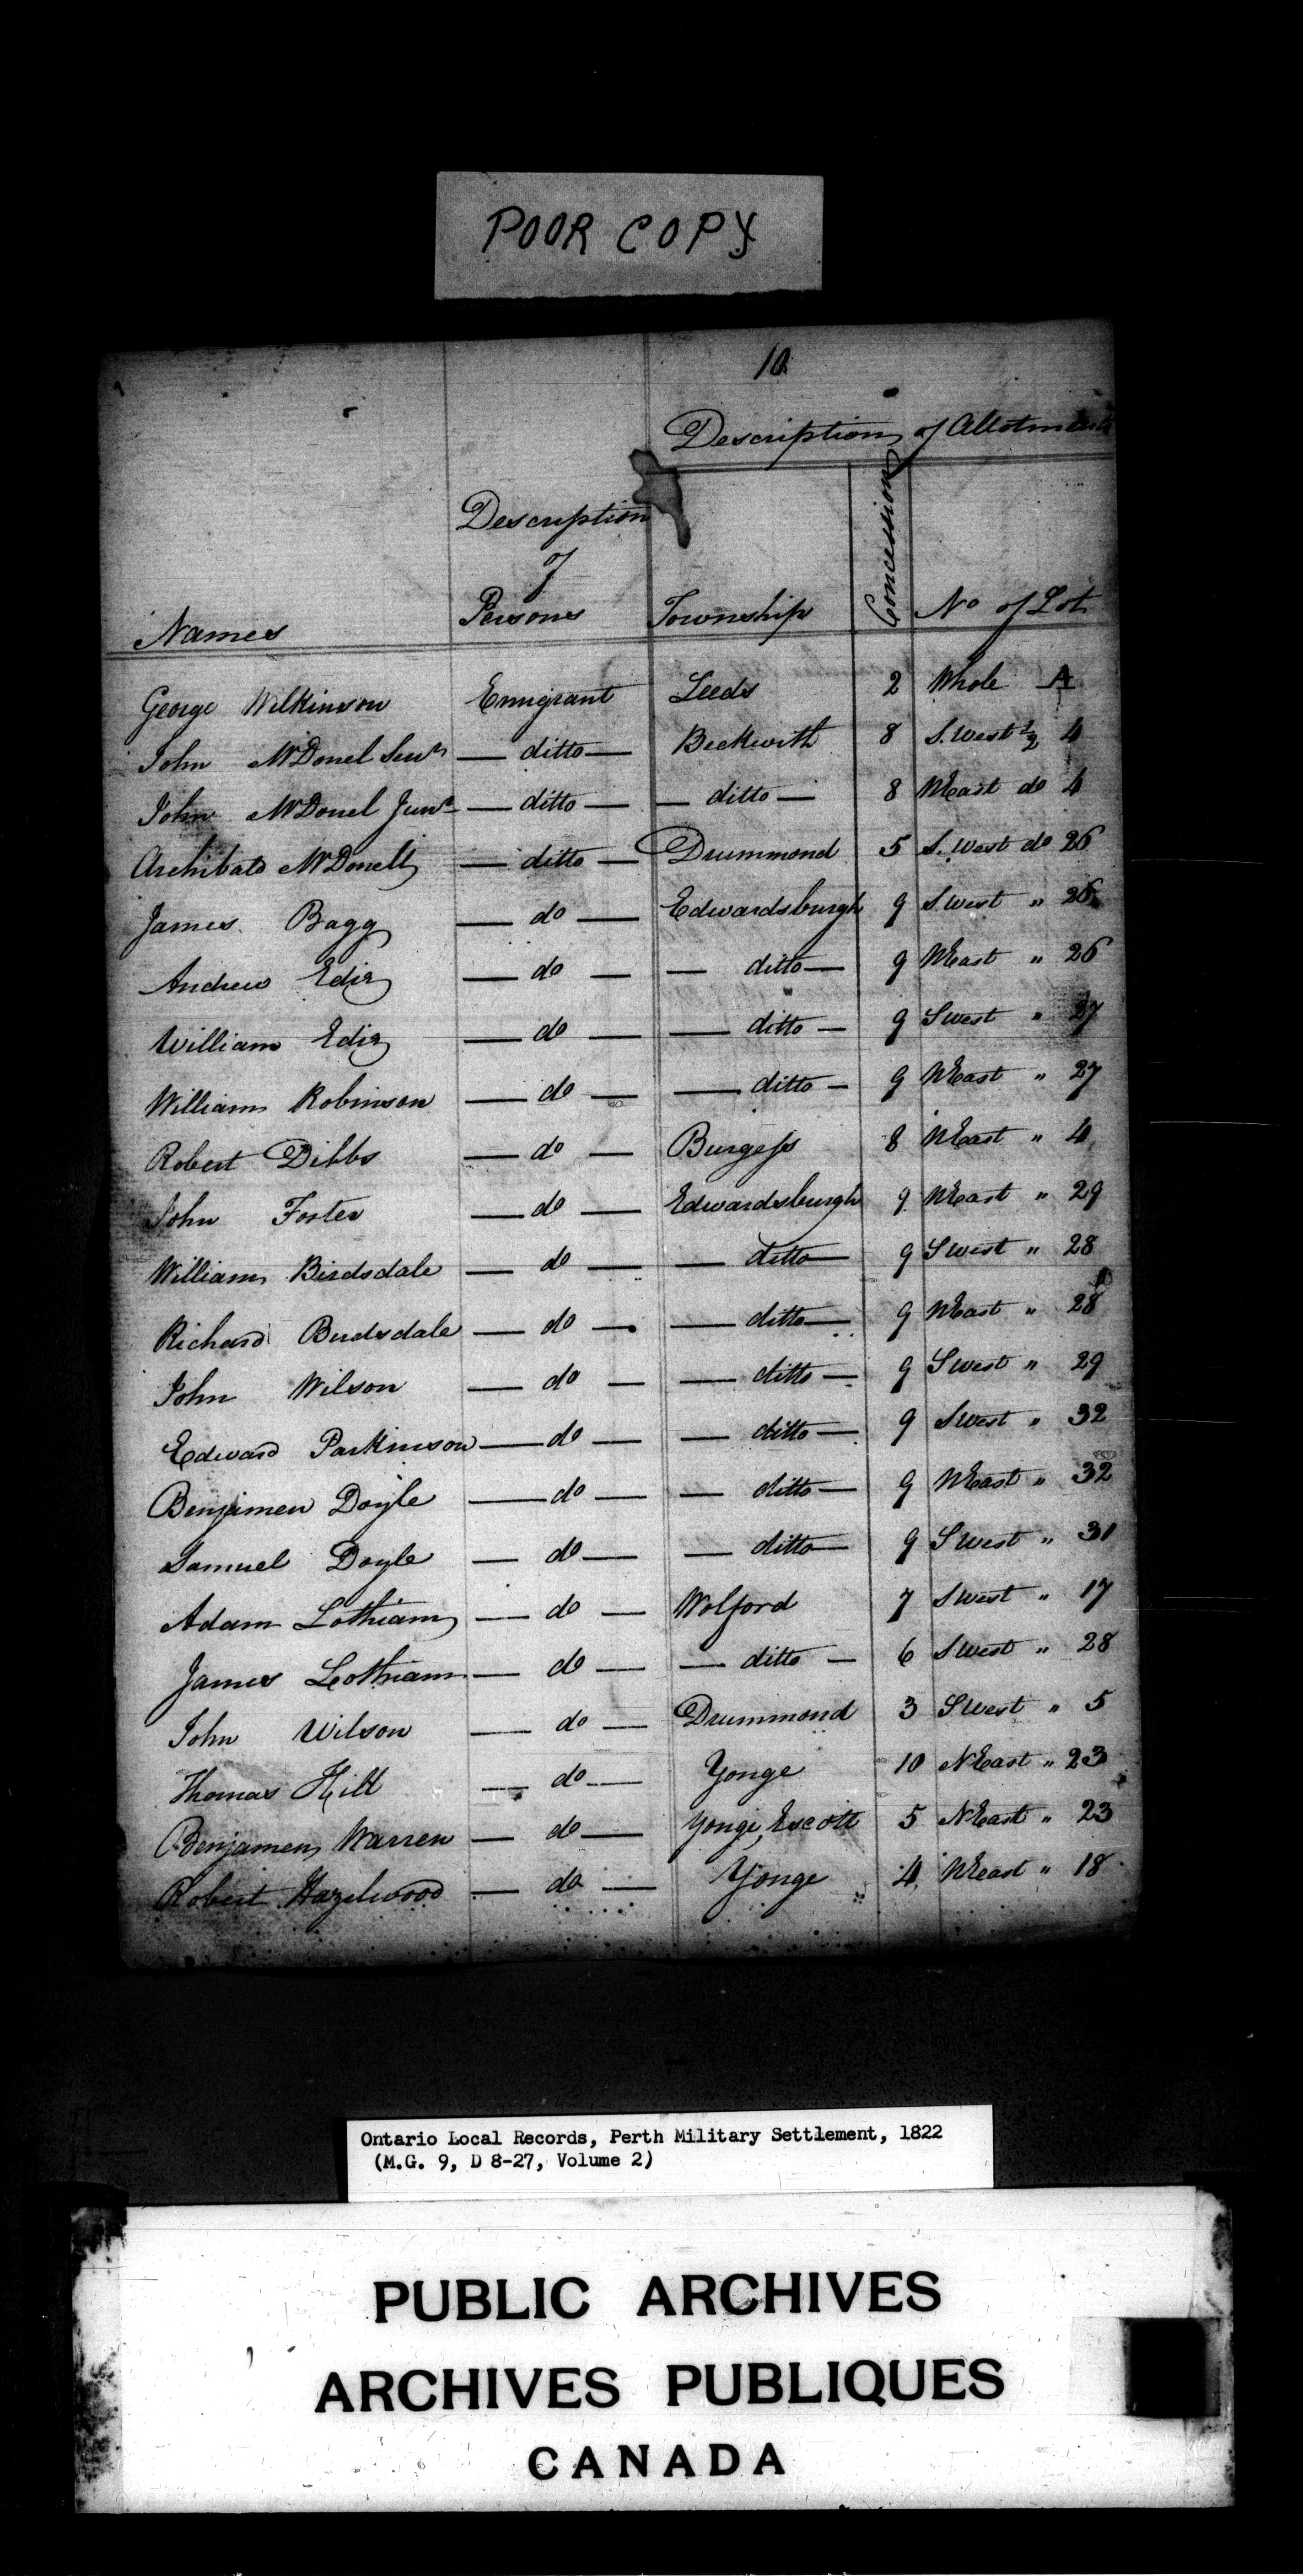 POOR COPY
10
Description of Allotments
Description
of
Persons
Names
Township
Concession
No of Lot
George Wilkinson Emigrant Leeds 2 Whole A
John McDonel Senr — ditto — Beckwith 8 S. West ½ 4
John McDonel Junr — ditto — — ditto — 8 NEast do 4
Archibald McDonell — ditto — Drummond 5 S. West do 26
James Bagg — do — Edwardsburgh 9 S West " 26
Andrew Edir — do — — ditto — 9 NEast " 26
William Edir — do — — ditto — 9 S West " 27
William Robinson — do — — ditto — 9 NEast " 27
Robert Dibbs — do — Burgess 8 NEast " 4
John Foster — do — Edwardsburgh 9 NEast " 29
William Birdsdale — do — — ditto — 9 S West " 28
Richard Birdsdale — do — — ditto — 9 NEast " 28
John Wilson — do — — ditto — 9 S West " 29
Edward Parkinson — do — — ditto — 9 S West " 32
Benjimen Doyle — do — — ditto — 9 NEast " 32
Samuel Doyle — do — — ditto — 9 S West " 31
Adam Lothian — do — Wolford 7 S West " 17
James Lothian — do — — ditto — 6 S West " 28
John Wilson — do — Drummond 3 S West " 5
Thomas Hill — do — Yonge 10 NEast " 23
Benjamen Warren — do — Yonge, Escott 5 NEast " 23
Robert Hazelwood — do — Yonge 4 NEast " 18
Ontario Local Records, Perth Military Settlement, 1822
(M.G. 9, D 8-27, Volume 2)
PUBLIC ARCHIVES
ARCHIVES PUBLIQUES
CANADA